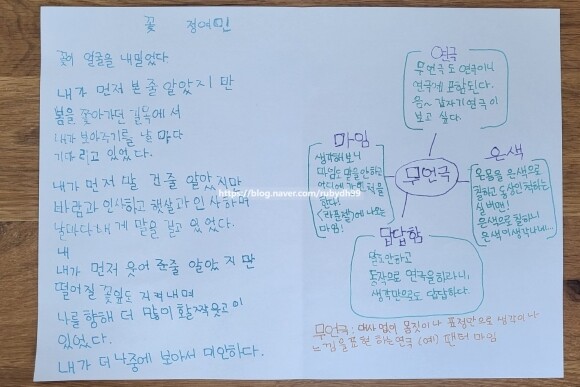 꽃 정여민
꽃이 얼굴을 내밀었다
내가 먼저 본 줄 알았지만
봄을 쫓아가던 길목에서
내가 보아주기를 날마다
기다리고 있었다.
내가 먼저 말 건 줄 알았지만
바람과 인사하고 햇살과 인사하며
날마다 내게 말을 걸고 있었다.
내
내가 먼저 웃어 준 줄 알았지만
떨어질 꽃잎도 지켜내며
나를 향해 더 많이 활짝 웃고 이
있었다.
내가 더 나중에 보아서 미안하다.
연극
무연극도 연극이니
연극에 포함된다.
음~ 갑자기 연극이
보고 싶다.
마임
생각해보니
마임도 말을 안하고
한다.
에 나오는
마임!
무언극
은색
온몸을 은색으로
칠하고 동상인 척하는
실버맨!
은색으로 칠하니
은색이 생각나네...
답답함
말도 안하고
동작으로 연극을 하라니,
생각만으로도 답답하다.
무언극: 대사 없이 몸짓이나 표정만으로 생각이나
느낌을 표현하는 연극 (예) 팬터마임
https://blog.naver.com/rubydh59